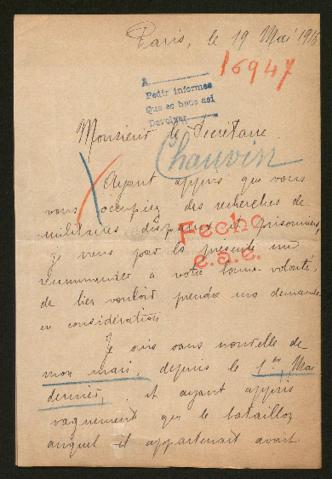 Paris, le 19 Mai 191
16947
A
Pedir informes
Que se hace asi
Devolver
Monsieur le Secrétaire
Chauvin
Ayant appris que vous
vous occupiez des recherches de
militaires disparus et prisonniers,
je viens par la présente me
recommander à votre bonne volonté,
de bien vouloir prendre ma demande
en considération
Fecho
e.s.e.
Je suis sans nouvelle de
mon mari, depuis le 1er Mai
dernier, et ayant appris
vaguement que le bataillon
auquel il appartenait avait